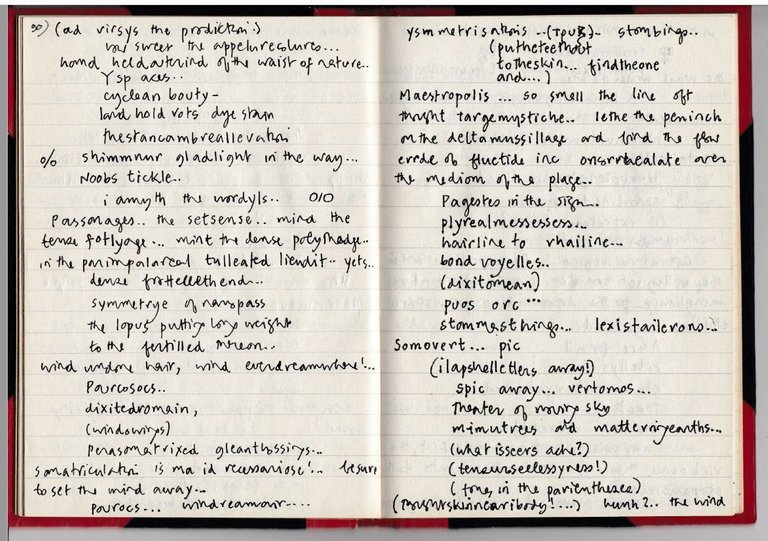 (ad virsys the prodiktion:)
vow sweet the appelurecolures...
hand held outkind of the waist of nature..
Ysp aces..
cyclean bouty-
land hold rots dye stain
thestancambreallevation
% shimmnur gladlight in the way...
Noobs tickle..
i amyth the wordyls.. 010
Passonages.. the setsense... mind the
tense fotlyoge... mint the dense polythedge..
in the panimpolarcal tulleated liendit-- yets..
dense frottellethend...
symmetrye of namspass
the lopus putting long weight
to the fultilled mreon..
wind undone hair, wind everdreamwhere!...
Pourcosocs..
dixitedromain,
(windswings)
Penasomatrixed gleantlossings...
somatriculation is ma id recensariose!.. be sure
to set the mind away...
pourocs... windreamair....
ysmmetrisations ..(Tpus).. stombings..
(putheteethout
totheskin... findtheone
and...)
Maestropolis ... so smell the line oft
thught targemystiche.. lethe the peninch
on the deltamussillage and find the flow
errde of fluctide inc onsorrhealate over
the mediom of the plage..
Pagestes in the sign...
plyrealmessessess...
hairline to rhailine...
bond voyelles..
(dixitomean)
puos orc ...
stommasthings... lexistailcrono...
Somovert... pic
(ilapshelletters away!)
spic away... vertomos...
Theater of moving sky
mimutrees and matterningeanths...
(what isseers ache?)
(tensunseelessyness!)
(tones in the parientheses)
(Thoughtskinincaribody!....) hunh?.. the wind